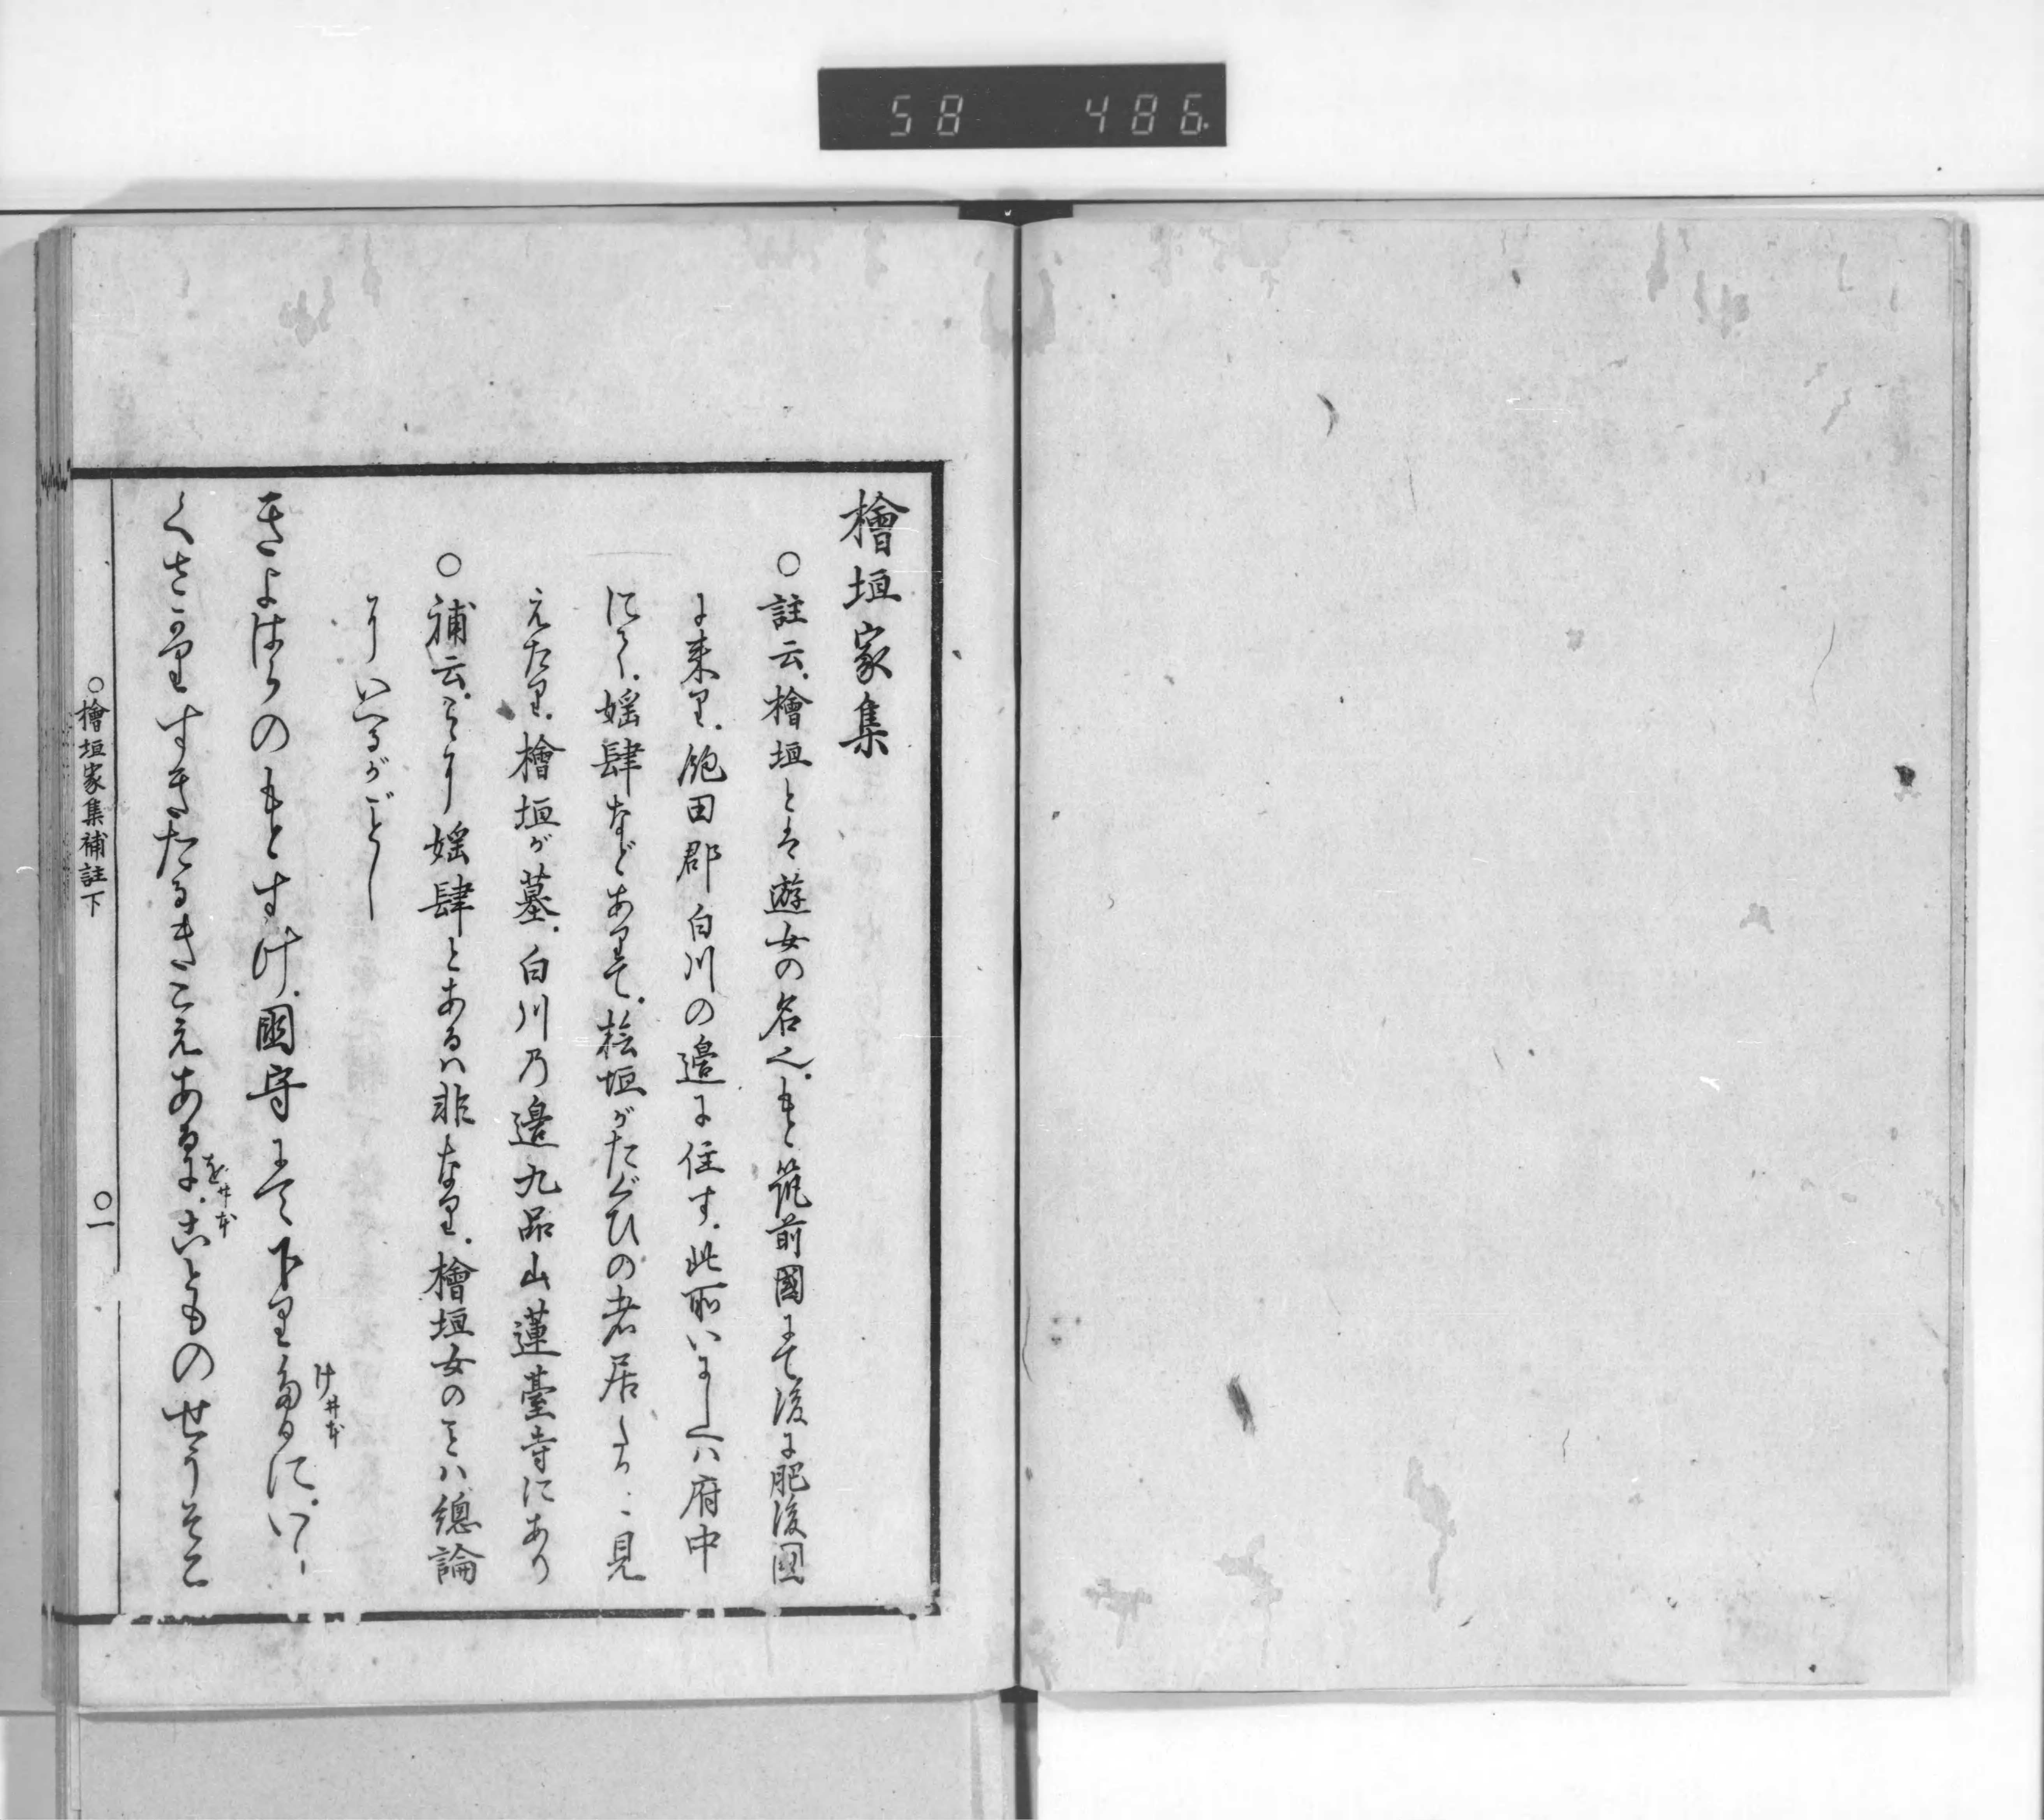 58 486
檜垣家集
○註云、檜垣とは遊女の名也、もと筑前國にて後に肥後国
に来り、飽田郡白川の邉に住す、此所いにしへハ府中
にて、婬肆などありて、桧垣がたぐひの者居しにや、見
えたり、檜垣が墓、白川乃邉九品山蓮臺寺にあり
○補云、こゝに婬肆とあるハ非なり、檜垣女のことハ總論
にいへるがごとし
きよはらのもとすけ、國守にて下りたるに、いし
け井本
くさかりすきたるきこえあるに、こともののせうそこ
を井本
○檜垣家集補註下 ○一